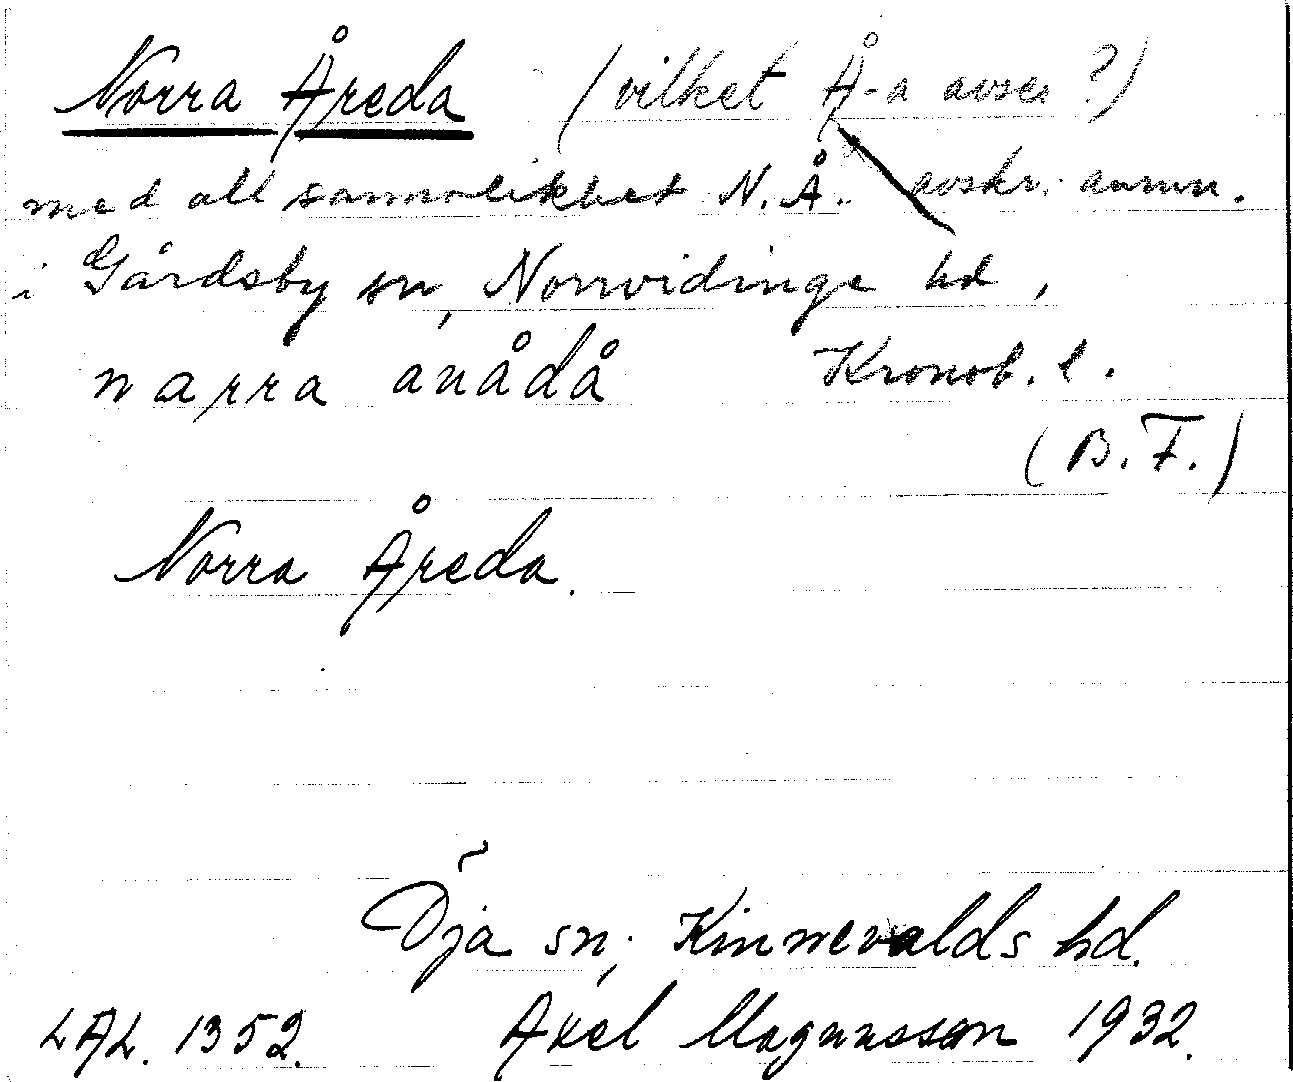 Norra Åreda (vilket Å-a avses ?)
med all sannolikhet N.Å. avskr. anm.
i Gårdsby sn, Norrvidinge hd,
narra anådå Kronob. l.
(B.F.)
Norra Åreda.
Öja sn; Kinnevalds hd.
LAL. 1352. Axel Magnusson 1932.